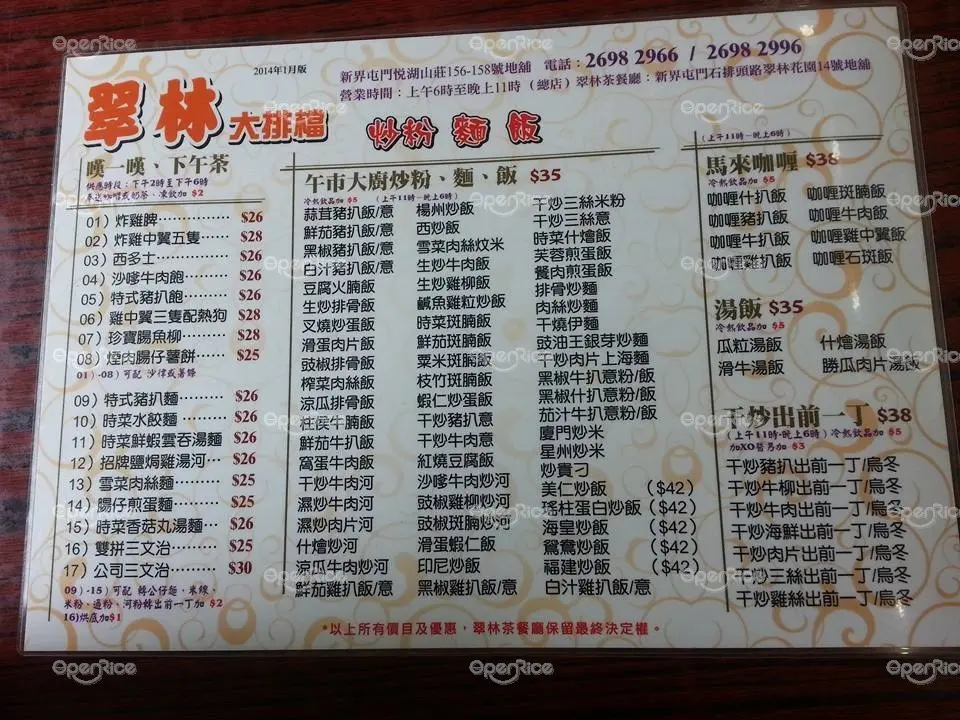 2014年1月版
新界屯門悅湖山莊156-158號地舖 電話：2698 2966 / 2698 2996
營業時間：上午6時至晚上11時 （總店）翠林茶餐廳：新界屯門石排頭路翠林花園14號地舖
翠林大排檔
炒粉麵飯
嘆一嘆、下午茶
供應時段：下午2時至下午6時
奉送咖啡或奶茶、凍飲加 $2
01）炸雞脾 $26
02）炸雞中翼五隻 $28
03）西多士 $26
04）沙嗲牛肉飽 $26
05）特式豬扒飽 $26
06）雞中翼三隻配熱狗 $28
07）珍寶腸魚柳 $28
08）煙肉腸仔薯餅 $25
01）-08）可配 沙律或薯條
09）特式豬扒麵 $26
10）時菜水餃麵 $26
11）時菜鮮蝦雲吞湯麵 $26
12）招牌鹽焗雞湯河 $26
13）雪菜肉絲麵 $25
14）腸仔煎蛋麵 $25
15）時菜香菇丸湯麵 $26
16）雙拼三文治 $25
17）公司三文治 $30
09）-15）可配 轉公仔麵、米線、
米粉、通粉、河粉轉出前一丁加 $2
16)烘底加$1
午市大廚炒粉、麵、飯 $35
冷熱飲品加 $5 （上午11時－晚上6時）
蒜茸豬扒飯/意
鮮茄豬扒飯/意
黑椒豬扒飯/意
白汁豬扒飯/意
豆腐火腩飯
生炒排骨飯
叉燒炒蛋飯
滑蛋肉片飯
豉椒排骨飯
榨菜肉絲飯
涼瓜排骨飯
柱侯牛腩飯
鮮茄牛扒飯
窩蛋牛肉飯
干炒牛肉河
濕炒牛肉河
濕炒肉片河
什燴炒河
涼瓜牛肉炒河
鮮茄雞扒飯/意
楊州炒飯
西炒飯
雪菜肉絲炆米
生炒牛肉飯
生炒雞柳飯
鹹魚雞粒炒飯
時菜斑腩飯
鮮茄斑腩飯
粟米斑腩飯
枝竹斑腩飯
蝦仁炒蛋飯
干炒豬扒意
干炒牛肉意
紅燒豆腐飯
沙嗲牛肉炒河
豉椒雞柳炒河
豉椒斑腩炒河
滑蛋蝦仁飯
印尼炒飯
黑椒雞扒飯/意
干炒三絲米粉
干炒三絲意
時菜什燴飯
芙蓉煎蛋飯
餐肉煎蛋飯
排骨炒麵
肉絲炒麵
干燒伊麵
豉油王銀芽炒麵
干炒肉片上海麵
黑椒牛扒意粉/飯
黑椒什扒意粉/飯
茄汁牛扒意粉/飯
廈門炒米
星州炒米
炒貴刁
美仁炒飯 （$42）
瑤柱蛋白炒飯（$42）
海皇炒飯 （$42）
鴛鴦炒飯 （$42）
福建炒飯 （$42）
白汁雞扒飯/意
（上午11時－晚上6時）
馬來咖喱 $38
冷熱飲品加 $5
咖喱什扒飯 咖喱斑腩飯
咖喱豬扒飯 咖喱牛肉飯
咖喱牛扒飯 咖喱雞中翼飯
咖喱雞扒飯 咖喱石斑飯
湯飯 $35
冷熱飲品加 $5
瓜粒湯飯 什燴湯飯
滑牛湯飯 勝瓜肉片湯飯
干炒出前一丁 $38
（上午11時-晚上6時）冷熱飲品加 $5
加XO醬另加 $3
干炒豬扒出前一丁/烏冬
干炒牛柳出前一丁/烏冬
干炒牛肉出前一丁/烏冬
干炒海鮮出前一丁/烏冬
干炒肉片出前一丁/烏冬
干炒三絲出前一丁/烏冬
干炒雞絲出前一丁/烏冬
*以上所有價目及優惠，翠林茶餐廳保留最終決定權。
OpenRice